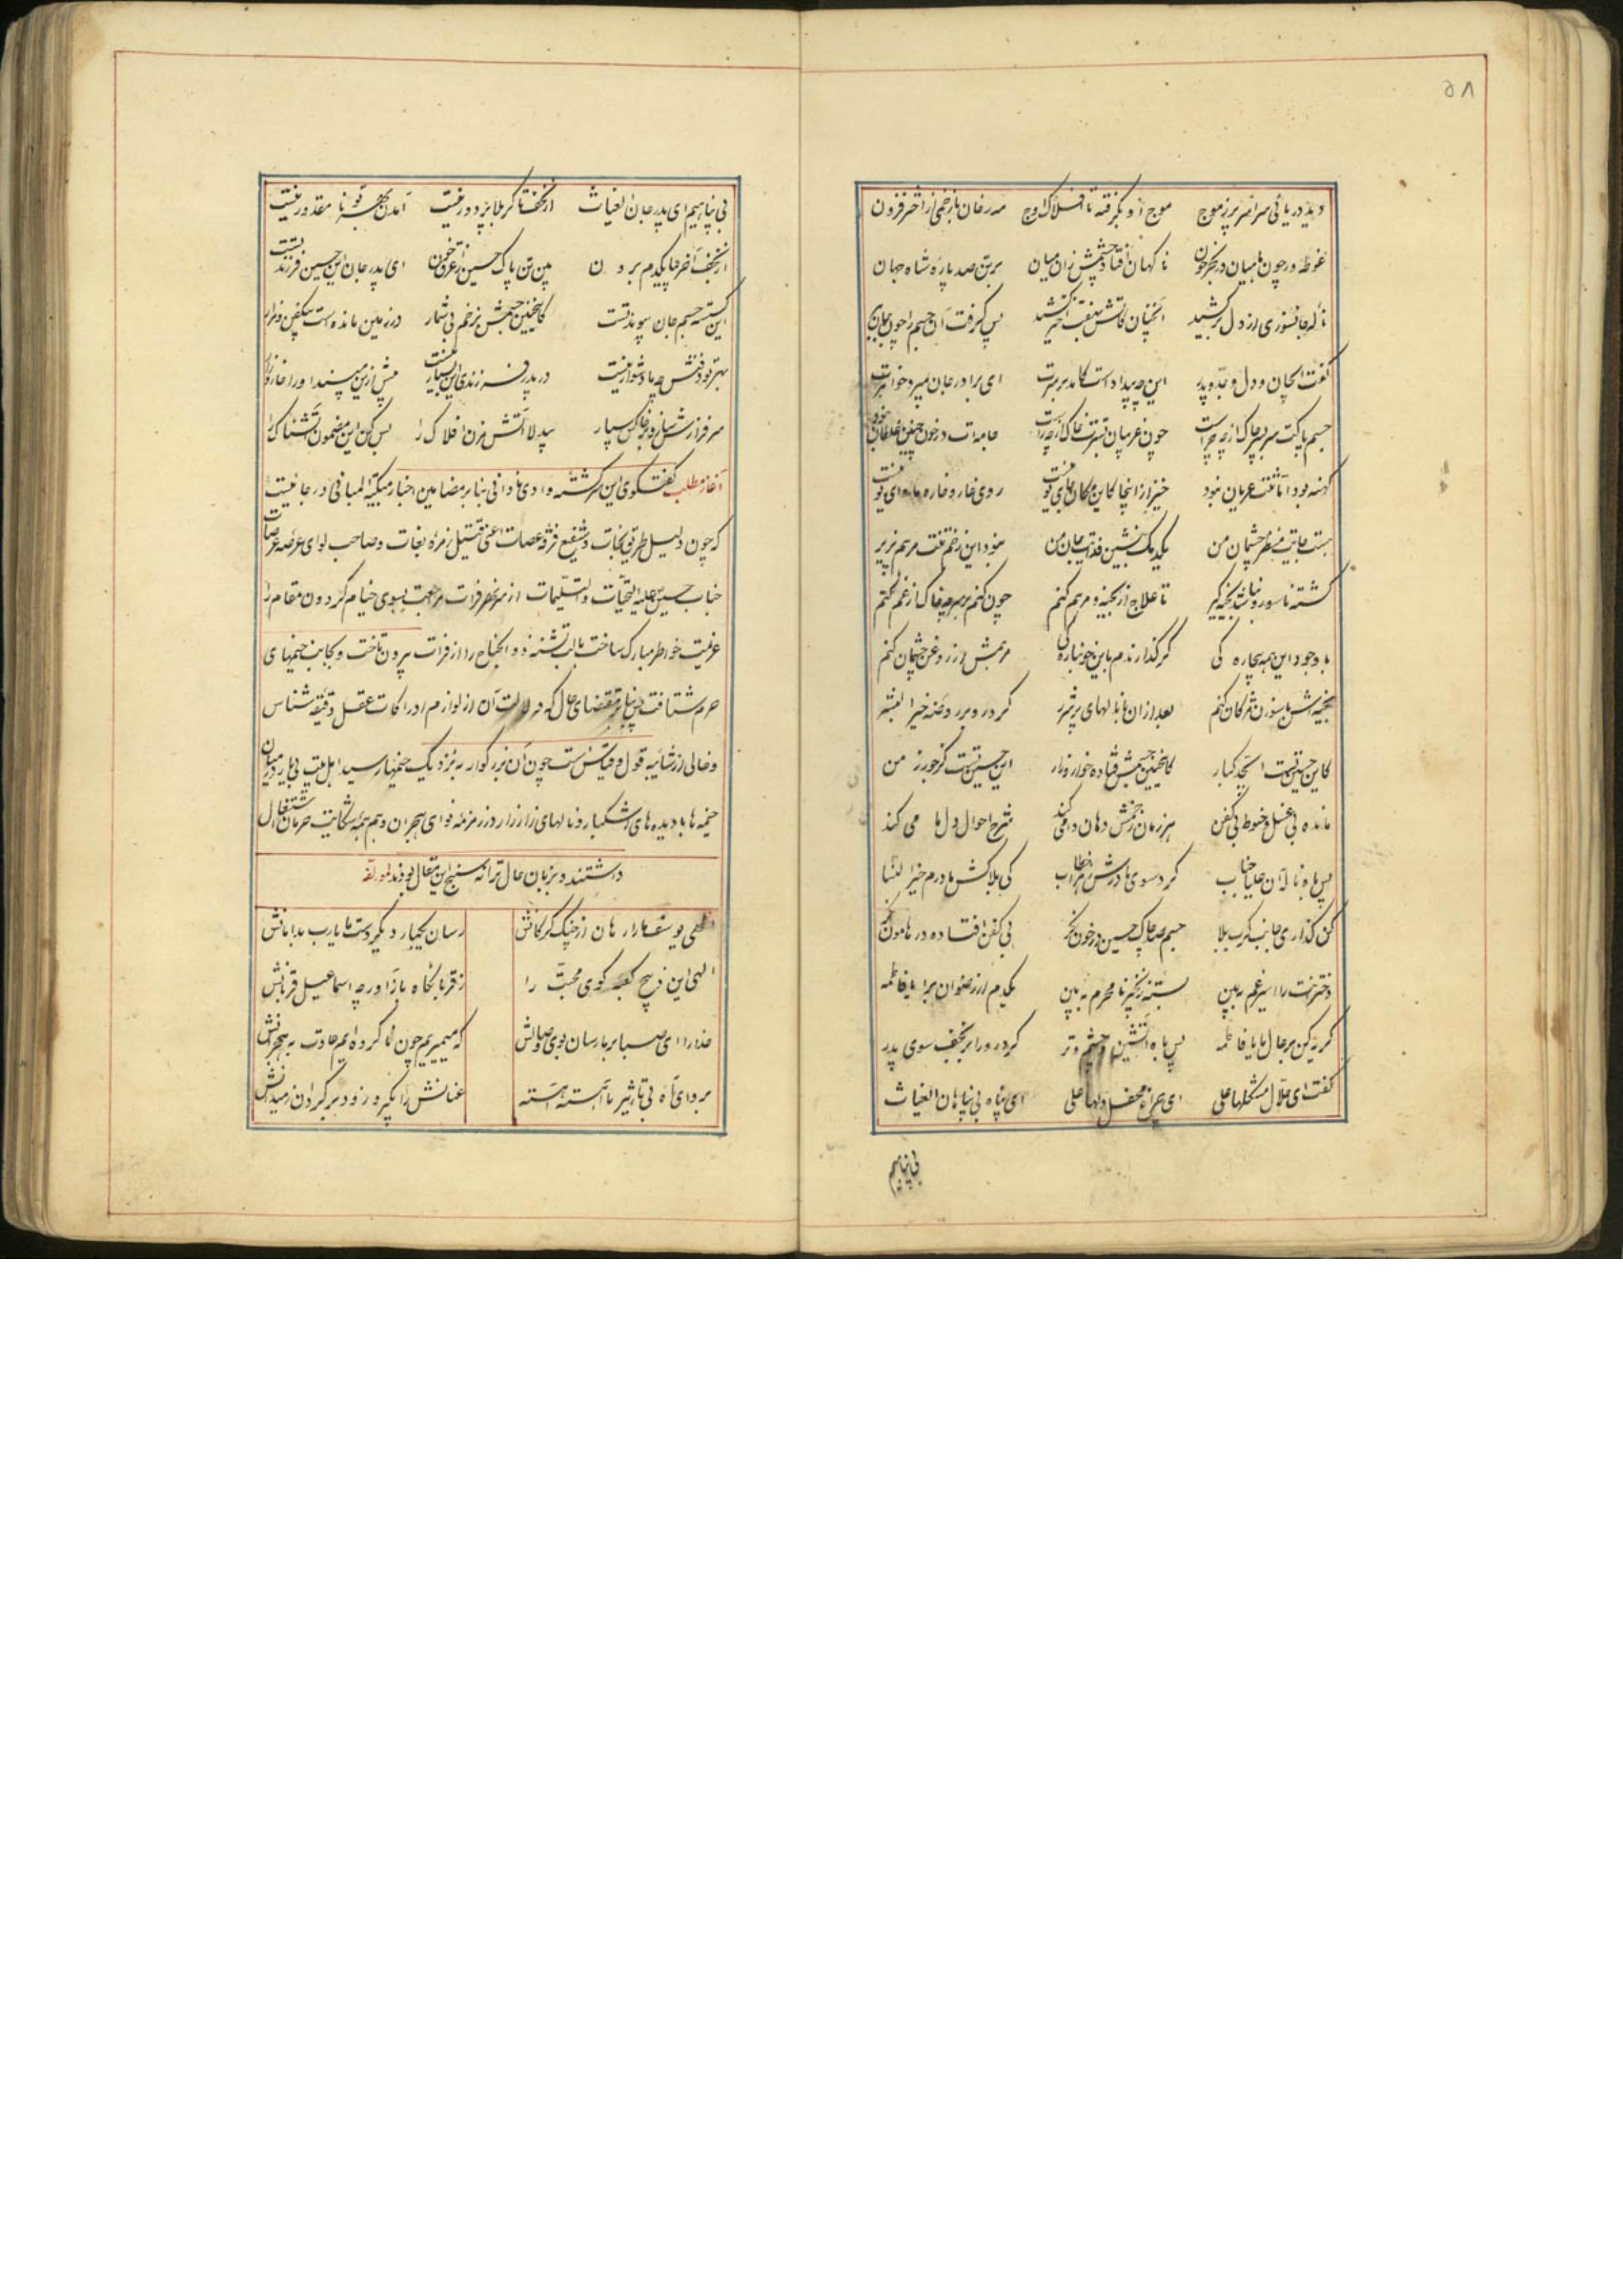 ۵۸
دید دریائی سراسر پر ز موج موج او بگرفته تا افلاک اوج مه رخان با زخمی از اختر فزون
غوطه ور چون ماهیان در بحر خون ناگهان افتاد چشمش زان میان بر تن صد پاره شاه جهان
ناله جانسوزی از دل برکشید آنچنان کاتش بهفت اختر کشید پس گرفت آن جسم را چون جان
گفت ایجان و دل و جد و پدر این چه بیداد است کامد بر سرت ای برادر جان بمیرد خواهرت
جسم پاکت سربسر چاک از چه چراست چون غریبان بسترت خاک از چه راست جامه ات در خون چنین غلطان نبود
کهنه بود اما تنت عریان نبود خیز از اینجا کاین مکان جای تو نیست روی خار و خاره ماوای تو نیست
هست جایت منظر چشمان من یکدمک بنشین فدایت جان من نبود این زخم تنت مرهم پذیر
گشته ناسور و نباشد بخیه گیر تا علاج از بخیه و مرهم کنم چون کنم بر سر چه خاک از غم کنم
با وجود این همه بیچاره گی گر گذارندم باین خونباره گی مرهمش از روغن چشمان کنم
بخیه اش با سوزن مژگان کنم بعد از آن با ناله‌ای پر شرر کرد رو بر روضه خیر البشر
کاین حسین تست ای جد کبار کاینچنین جسمش فتاده خوار و زار این حسین تست کز جور زمن
مانده بی غسل و حنوط و بی کفن هر زمان زخمش دهان وا می کند شرح احوال دل ما می کند
پس با آه و ناله آن علیا جناب کرد سوی مادرش خطاب کی بلاکش مادرم خیر النسا
کن گذاری جانب کرب بلا جسم صد چاک حسین در خون نگر بی کفن افتاده در هامون نگر
دخترت را اسیر غم ببین بسته زنجیر نامحرم ببین یکدم از رضوان برا یا فاطمه
گریه کن بر حال ما یا فاطمه پس با آه آتشین و چشم تر کرد رو را بر نجف سوی پدر
گفت ای حلال مشکلها علی ای چراغ محفل دلها علی ای پناه بی پناهان الغیاث
بی پناهیم
بی پناهیم ای پدر جان الغیاث از نجف تا کربلا پر دور نیست آمدن بهر تو نامقدور نیست
از نجف آخر بیا یکدم برون بین تن پاک حسین غرق خون ای پدر جان این حسین فرزند تست
این گسسته جسم جان پیوند تست کاینچنین جسمش بزخم بی شمار در زمین مانده است بیکفن و مزار
بهر تو دفنش چه پا دشوار نیست در پدر فرزندی این بسیار نیست بیش ازین مپسند او را خار و زار
سرفرازش ساز و بر خاکش سپار بیدلا آتش مزن افلاک را بس کن این مضمون آتشناک را
آغاز مطلب گفتگوی این سرگشته وادی نادانی بنابر مضامین اخبار مبکیة المبانی در جائیست
که چون دلیل طریق نجات و شفیع فرقه عصات اعنی قتیل زمره بغات و صاحب لوای عرصه عرصات
جناب حسین علیه التحیات و التسلیمات از سر نهر فرات مراجعت بسوی خیام گردون مقام را
عزیمت خواطر مبارک ساخت با لب تشنه ذو الجناح را از فرات بیرون تاخت و بجانب خیمهای
حرم شتافت پس بنابر مقتضای حال که دلالت آن از لوازم ادراکات عقل دقیقه شناس
و خالی از شایبه قول و قیاس است چون آن بزرگوار به نزدیک خیمها رسید اهل بیت بی یار در میان
خیمه ها با دیده های اشکبار و نالهای زار زار در زمزمه نوای هجران و همهمه شکایت حرمان اشتغال
داشتند و بزبان حال ترانه سنج این مقال بودند لمؤلفه
الهی یوسف ما را رهان از چنگ گرگانش رسان یکبار دیگر دست ما یارب بدامانش
الهی این ذبیح کعبه کوی محبت را ز قربانگاه باز آور چه اسماعیل قربانش
خدا را ای صبا بر ما رسان بوی وصالش که میمیریم چون ما کرده ایم عادت به هجرانش
برو ای آه بی تاثیر ما آهسته آهسته عنانش را بگیر و زود برگردان ز میدانش